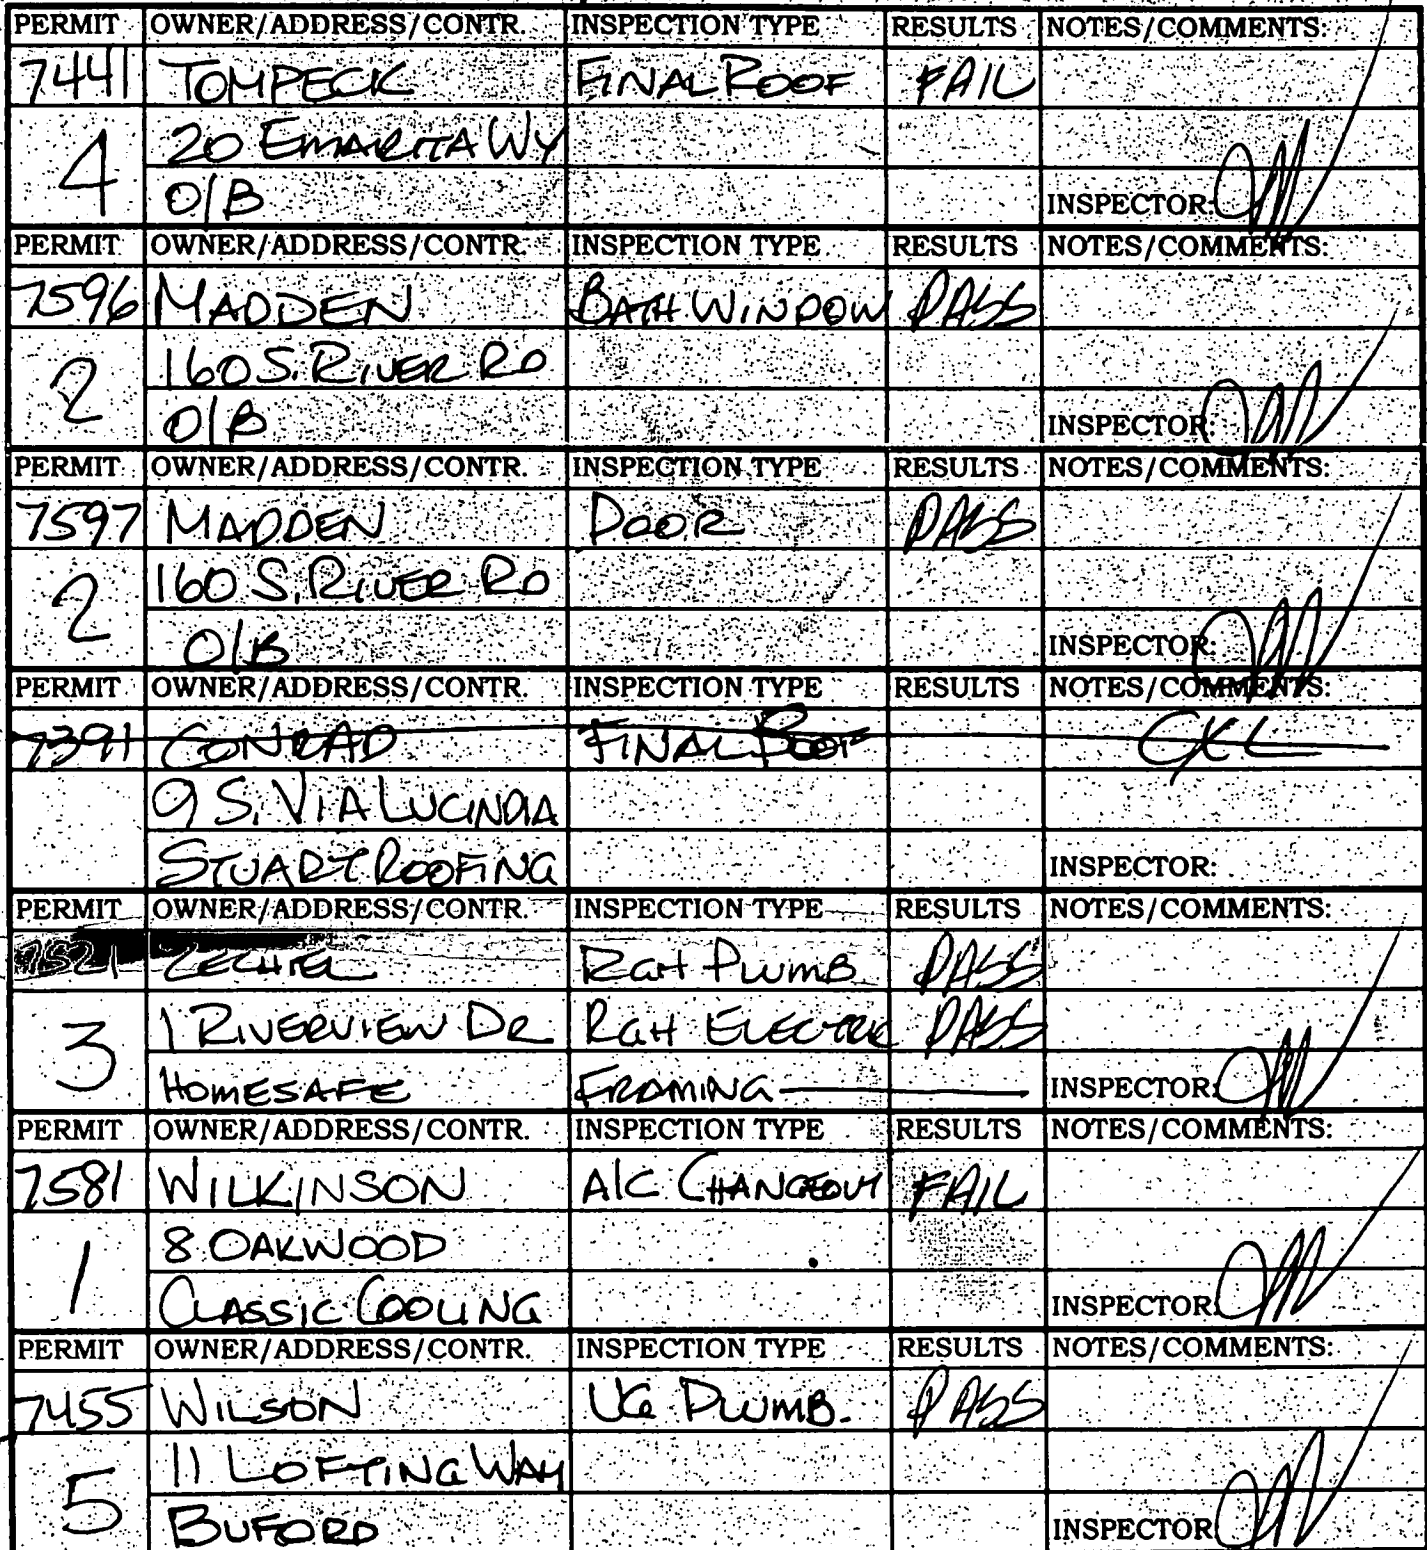 PERMIT OWNER/ADDRESS/CONTR. INSPECTION TYPE RESULTS NOTES/COMMENTS:
7441 TOMPECK FINAL ROOF FAIL
4 20 EMARITA WY
O/B INSPECTOR:
PERMIT OWNER/ADDRESS/CONTR. INSPECTION TYPE RESULTS NOTES/COMMENTS:
7596 MADDEN BATH WINDOW PASS
2 160 S. RIVER RD
O/B INSPECTOR:
PERMIT OWNER/ADDRESS/CONTR. INSPECTION TYPE RESULTS NOTES/COMMENTS:
7597 MADDEN DOOR PASS
2 160 S. RIVER RD
O/B INSPECTOR:
PERMIT OWNER/ADDRESS/CONTR. INSPECTION TYPE RESULTS NOTES/COMMENTS:
7391 CONRAD FINAL ROOF
9 S. VIA LUCINDIA
STUART ROOFING INSPECTOR:
PERMIT OWNER/ADDRESS/CONTR. INSPECTION TYPE RESULTS NOTES/COMMENTS:
7521 ZECHIEL RGH PLUMB PASS
3 1 RIVERVIEW DR RGH ELECTRIC PASS
HOMESAFE FRAMING INSPECTOR:
PERMIT OWNER/ADDRESS/CONTR. INSPECTION TYPE RESULTS NOTES/COMMENTS:
7581 WILKINSON A/C CHANGEOUT FAIL
1 8 OAKWOOD
CLASSIC COOLING INSPECTOR:
PERMIT OWNER/ADDRESS/CONTR. INSPECTION TYPE RESULTS NOTES/COMMENTS:
7455 WILSON UG PLUMB. PASS
5 11 LOFTING WAY
BUFORD INSPECTOR: